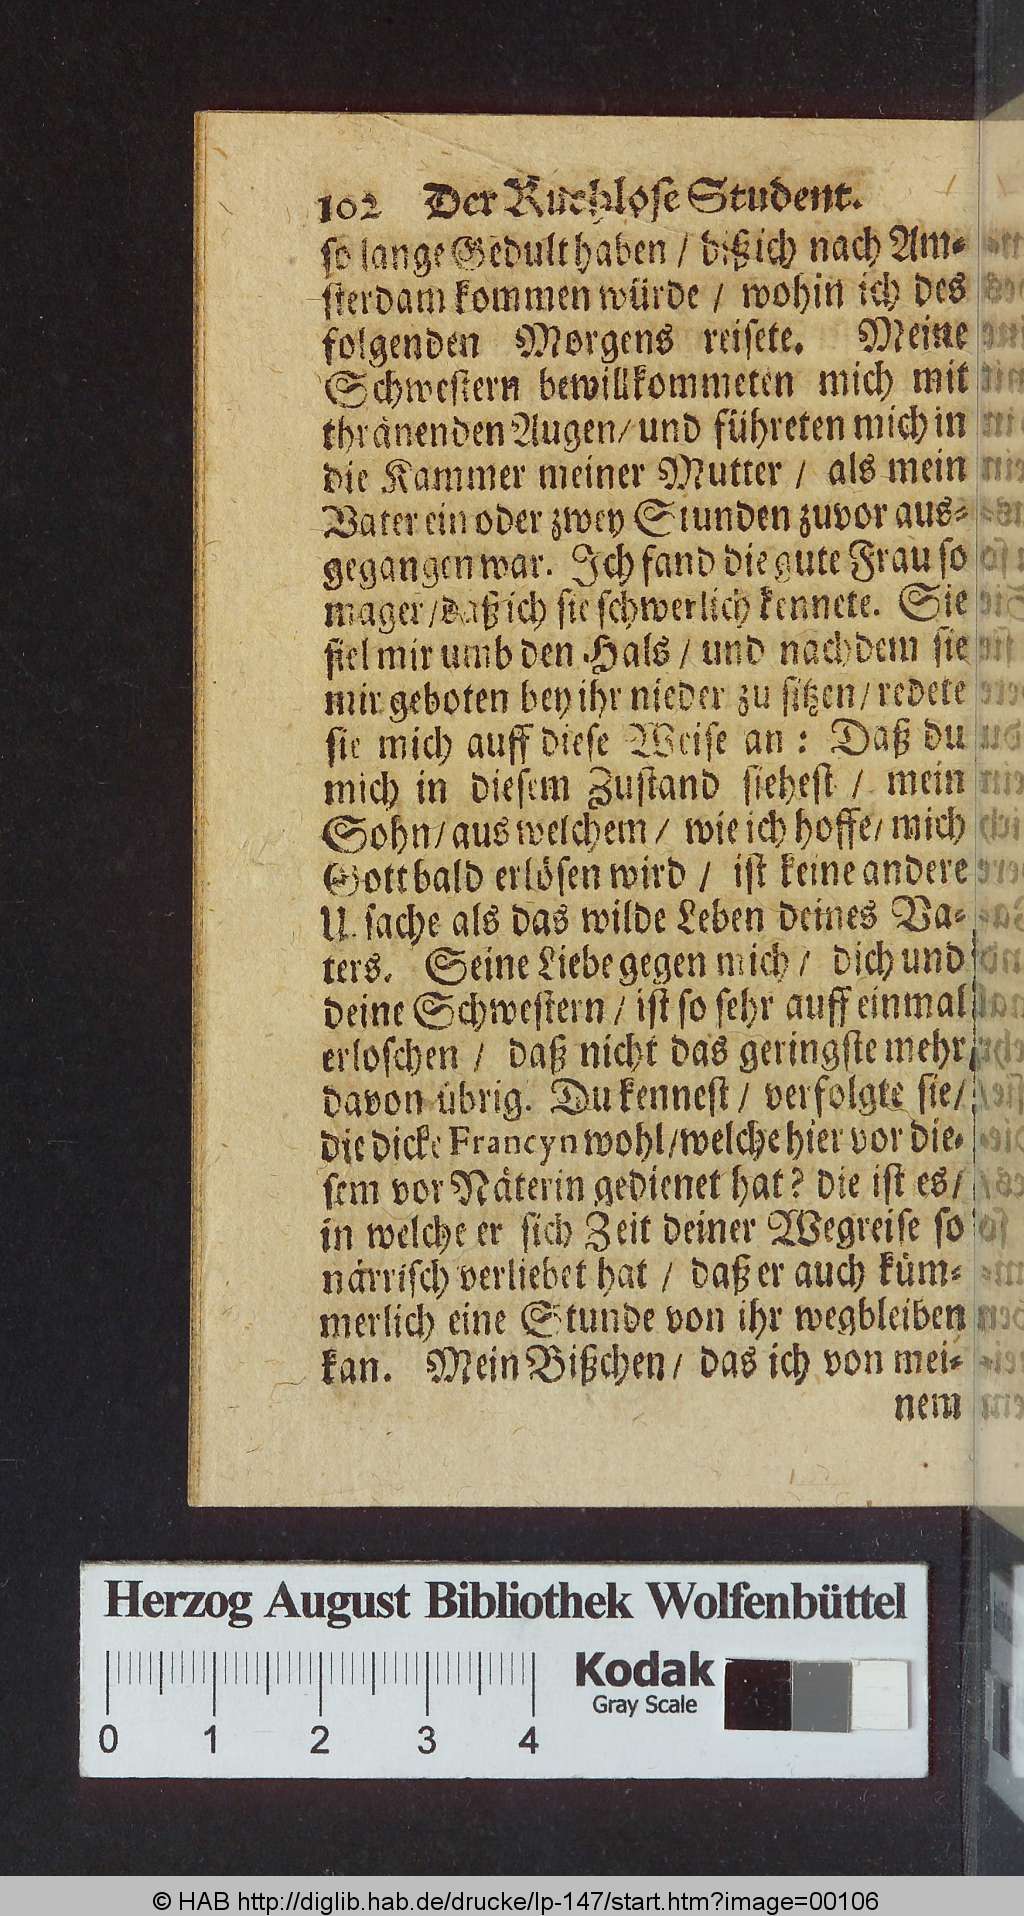 102 Der Ruchlose Student.
so lange Gedult haben / biß ich nach Am-
sterdam kommen würde / wohin ich des
folgenden Morgens reisete. Meine
Schwestern bewillkommeten mich mit
thränenden Augen / und führeten mich in
die Kammer meiner Mutter / als mein
Vater ein oder zwey Stunden zuvor aus-
gegangen war. Ich fand die gute Frau so
mager / daß ich sie schwerlich kennete. Sie
fiel mir umb den Hals / und nachdem sie
mir geboten bey ihr nieder zu sitzen / redete
sie mich auff diese Weise an : Daß du
mich in diesem Zustand siehest / mein
Sohn / aus welchem / wie ich hoffe / mich
Gott bald erlösen wird / ist keine andere
U sache als das wilde Leben deines Va-
ters. Seine Liebe gegen mich / dich und
deine Schwestern / ist so sehr auff einmal
erloschen / daß nicht das geringste mehr
davon übrig. Du kennest / verfolgte sie /
die dicke Francyn wohl / welche hier vor die-
sem vor Näterin gedienet hat? die ist es /
in welche er sich Zeit deiner Wegreise so
närrisch verliebet hat / daß er auch küm-
merlich eine Stunde von ihr wegbleiben
kan. Mein Bißchen / das ich von mei-
nem
Herzog August Bibliothek Wolfenbüttel
Kodak
Gray Scale
0 1 2 3 4
© HAB http://diglib.hab.de/drucke/lp-147/start.htm?image=00106